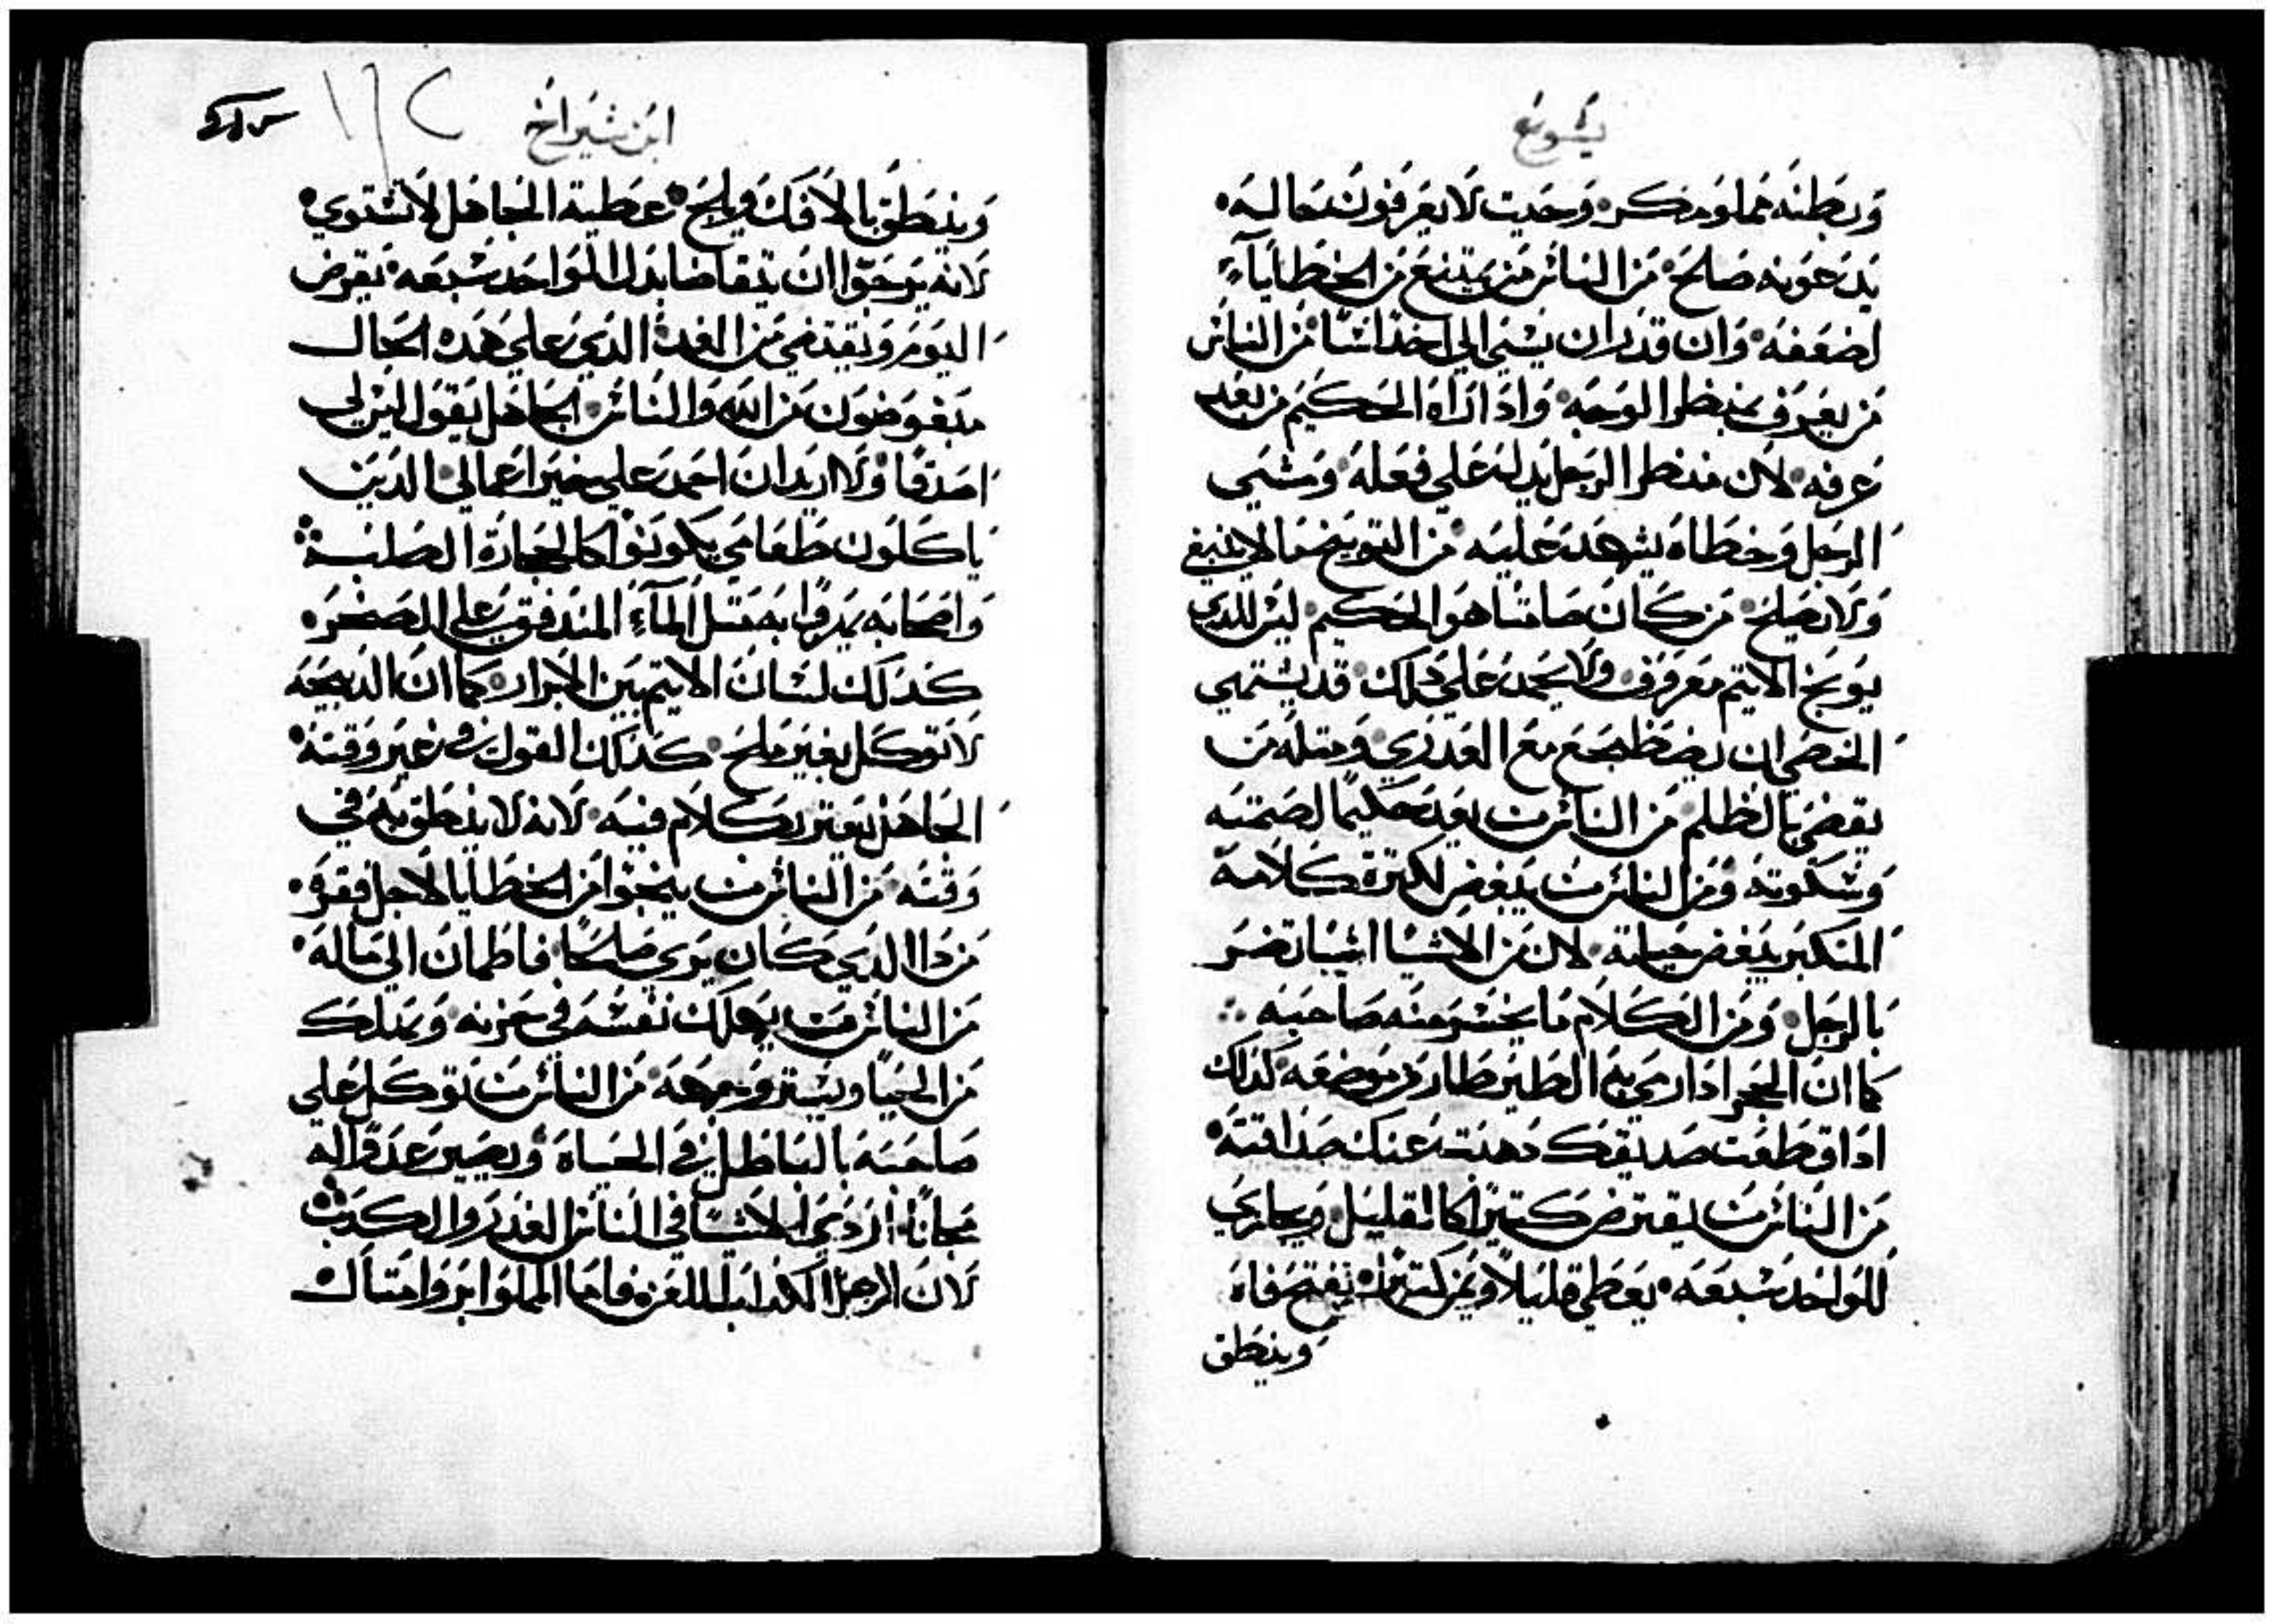 يشوع
وبطنه مملو مكر وحيت لا يعرفون بحاله
يدعونه صالح من الناس من يمتنع من الخطاياء
لضعفه وان قدر ان يسى الي احد اسا من الناس
من يعرف بمنظر الوجه واذا اراه الحكيم من بعد
عرفه لان منظر الرجل يدله علي فعله ومشي
الرجل وخطاه يشهد عليه من التوبيخ ما لا ينبغي
ولا يصلح من كان صامتا هو الحكيم ليس للدي
يوبخ الاتيم معروف ولا يحمد علي دلك قد يشتهي
الخصي ان يضطجع مع العدري ومتله من
يقضي بالظلم من الناس من يعد حكيما لصمته
وسكوته ومن الناس من يبغض لكترة كلامه
المتكبر يبغض حياته لان من الاشيا اشيا تضر
بالرجل ومن الكلام ما يخسر منه صاحبه
كما ان الحجر ادا رمي به الطير طار من موضعه كدلك
ادا قطعت صديقك دهبت عنك صداقته
من الناس من يقترض كتيرا كالقليل ويجازي
للواحد سبعه يعطي قليلا ويمن كتيرا يفتح فاه
وينطق
ابن شيراخ
وينطق بالافك ويلح عطية الجاهل لا تستوي
لانه يرجوا ان تقاضا بدل الواحد سبعه يقرض
اليوم ويقتضي من الغد الدي علي هده الحال
مبغوضون من الله والناس الجاهل يقول ليس لي
اصدقا ولا اريد ان احمد علي خير اعمالي الدين
ياكلون طعامي يكونوا كالحجارة الصلبة
واصحابه يمروا به متل المآء المندفق علي الصخر
كدلك لسان الاتيم بين الابرار كما ان الدبيحه
لا توكل بغير ملح كدلك القول في غير وقته
الجاهل يعتر بكلام فيه لانه لا ينطق به في
وقته من الناس من ينجوا من الخطايا لاجل فقره
من دا الدي كان يري صلحا فاطمان الي ماله
من الناس من يهلك نفسه في حزنه ويملك
من الحيا ويستر وجهه من الناس من توكل علي
صاحبه بالباطل في الحياة ويصير عدوا له
مجانا اردي الاشيا في الناس الغدر والكدب
لان الرجل الكداب للغزه فاما الملوا بر وامتال